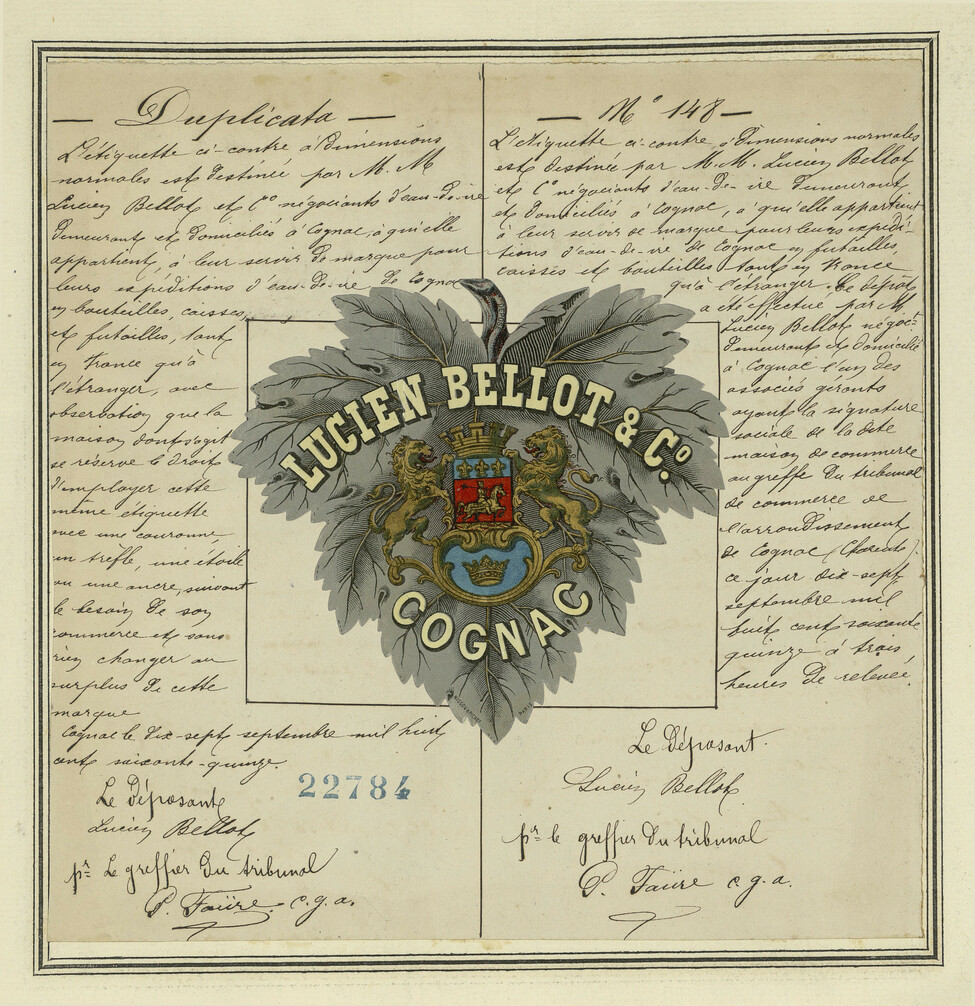 — Duplicata —
L'étiquette ci-contre à dimensions
normales est destinée par M. M
Lucien Bellot et Cº négociants d'eau-de-vie
demeurant et domiciliés à Cognac, à qu'elle
appartient, à leur servir de marque pour
leurs expéditions d'eau-de-vie de Cognac
en bouteilles, caisses,
et futailles, tant
en France qu'à
l'étranger, avec
observation que la
maison dont s'agit
se réserve le droit
d'employer cette
même étiquette
avec une couronne
un trèfle, une étoile
ou une ancre, suivant
le besoin de son
commerce et sans
rien changer au
surplus de cette
marque
Cognac le dix-sept septembre mil huit
cent soixante-quinze.
Le déposant
Lucien Bellot
pr le greffier du tribunal
P. Faure c.g.a.
22784
LUCIEN BELLOT & Cº
COGNAC
PARIS
— Nº 148 —
L'étiquette ci-contre à dimensions normales
est destinée par M. M. Lucien Bellot
et Cº négociants d'eau-de-vie demeurant
et domiciliés à Cognac, à qui elle appartient
à leur servir de marque pour leurs expédi-
tions d'eau-de-vie de Cognac en futailles,
caisses et bouteilles tant en France
qu'à l'étranger. Ce dépôt
a été effectué par M.
Lucien Bellot négoct
demeurant et domicilié
à Cognac l'un des
associés gérants
ayant la signature
sociale de la dite
maison de commerce
au greffe du tribunal
de commerce de
l'arrondissement
de Cognac (Charente)
ce jour dix-sept
septembre mil
huit cent soixante
quinze à trois
heures de relevée.
Le déposant.
Lucien Bellot
pr le greffier du tribunal
P. Faure c.g.a.